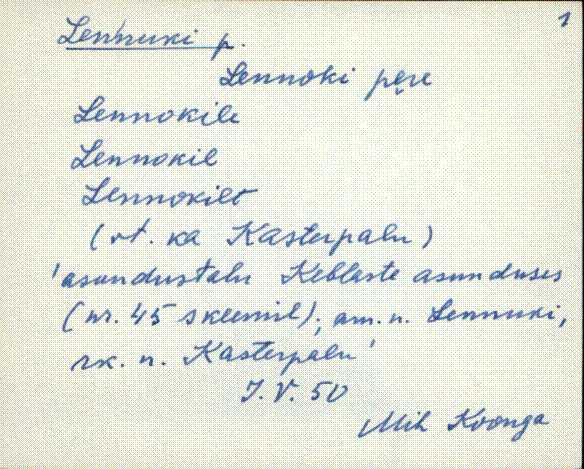 1
Lennuki p.
Lennoki pęre
Lennokile
Lennokil
Lennokilt
(vt. ka Kasterpalu)
'asundustalu Keblaste asunduses
(nr. 45 skeemil); am. n. Lennuki,
rk. n. Kasterpalu'
J. V. 50
Mih Koonga